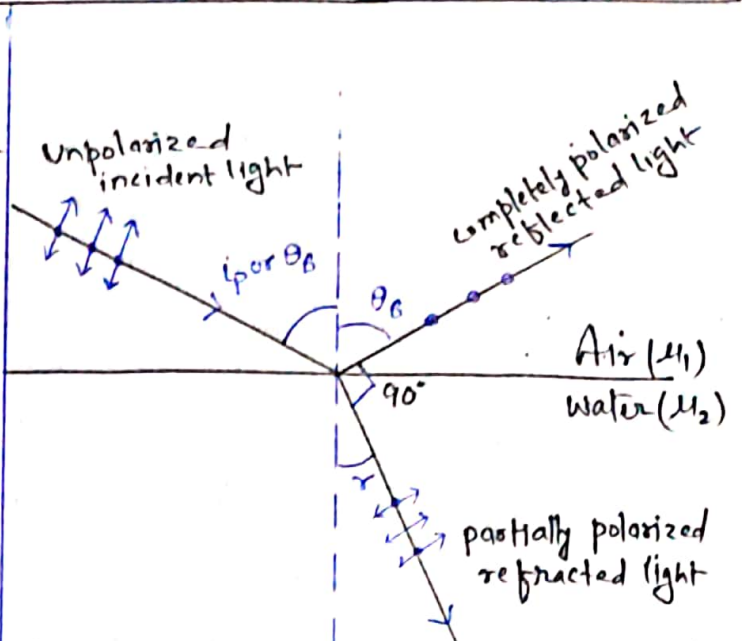 Unpolarized
incident light
completely polarized
reflected light
ip or θB
θB
Air (μ1)
90°
Water (μ2)
r
partially polarized
refracted light